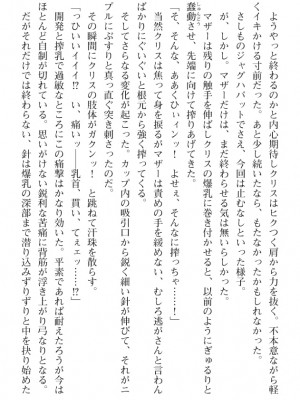 ようやっと終わるのかと内心期待しクリスはヒクつく肩から力を抜く。不本意ながら軽
くイキかける寸前だった。あと少し続いたなら、もたなかったかもしれなかった。
さしものジャグハバットでさえ、今回は止むなしといった様子。
が、しかし。マザーだけは、まだ終わらせる気は無いらしかった。
マザーは残りの触手を伸ばしてクリスの爆乳に巻き付かせると、以前のようにぎゅるりと
蠢動させ、先端に向けて搾りあげてきた。
「そ、そんな、ああくひィンッ！ よせぇ、そんなに搾っちゃ――！」
当然クリスは焦って身を捩るがマザーは責めの手を緩めない、むしろ逃がさんと言わん
ばかりにぐいぐいと根元から強く搾ってくる。
そしてさらなる変化が起こった。カップ内の吸引口から鋭く細い針が伸びて、それが二
プルにぶすりと真っ直ぐ突き刺さったのだ。
その瞬間にクリスの肢体がガクンッ！ と跳ねて汗珠を散らす。
「つひいィイイ!? い、痛いッ――乳首、貫い、てぇェッ……!?」
開発と搾乳で過敏なところにこの痛撃はかなり効いた。平素であれば耐えたろうが今は
ほとんど自制が切れている。思いがけない鋭利な苦痛に背筋が浮き上がり弓なりとなる。
だがそれだけでは終わらない、針は爆乳の深部まで潜り込みずりずりと中を抉り始めた